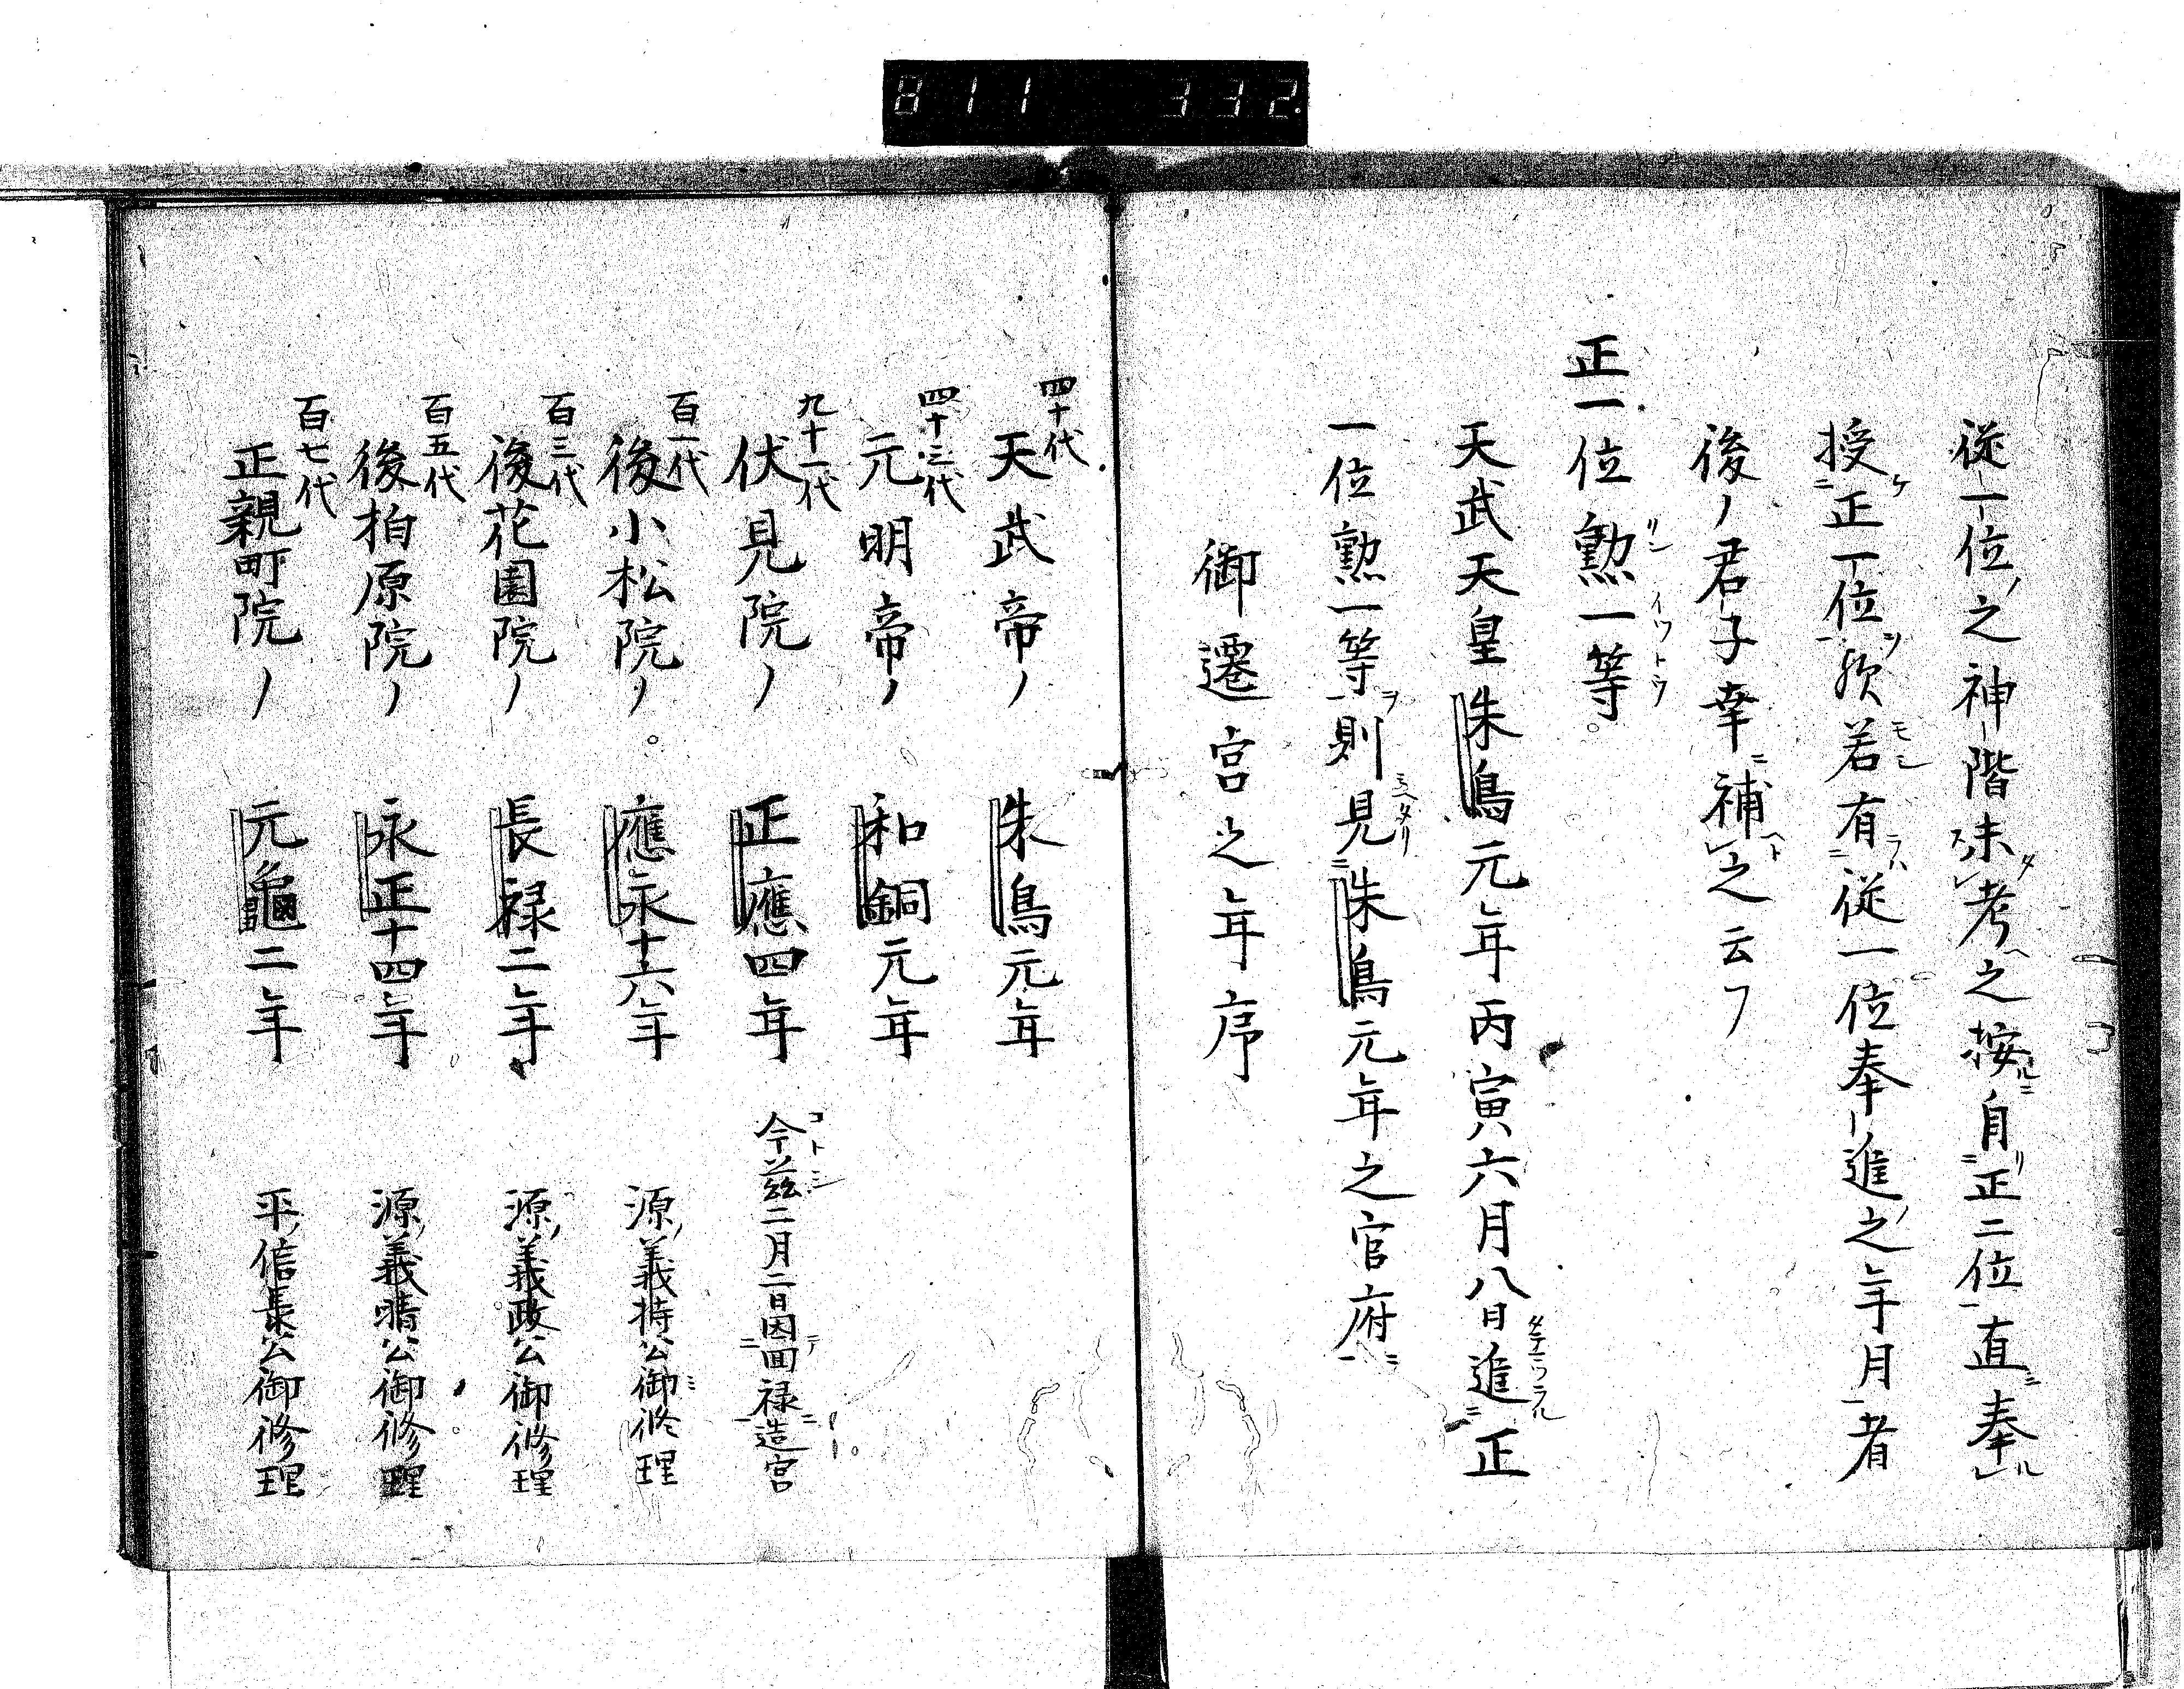 811 332.
従一位之神階未考之按自正二位直奉
授正一位欤若有従一位奉進之年月者
後ノ君子幸補之云フ
正一位勲一等
天武天皇朱鳥元年丙寅六月八日進正
一位勲一等則見朱鳥元年之官府
御遷宮之年序
四十代天武帝ノ 朱鳥元年
四十三代元明帝ノ 和銅元年
九十一代伏見院ノ 正應四年 今茲二月二日因囬禄造宮
百一代後小松院ノ 應永十六年 源義持公御修理
百三代後花園院ノ 長禄二年 源義政公御修理
百五代後柏原院ノ 永正十四年 源義晴公御修理
百七代正親町院ノ 元龜二年 平信長公御修理